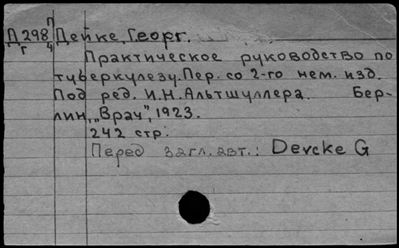 П
Д 298 Дейке, Георг.
г ч
Практическое руководство по
туберкулезу. Пер. со 2-го нем. изд.
Под ред. И.Н. Альтшуллера. Бер-
лин, „Врач", 1923.
242 стр.
Перед загл. авт.: Dercke G